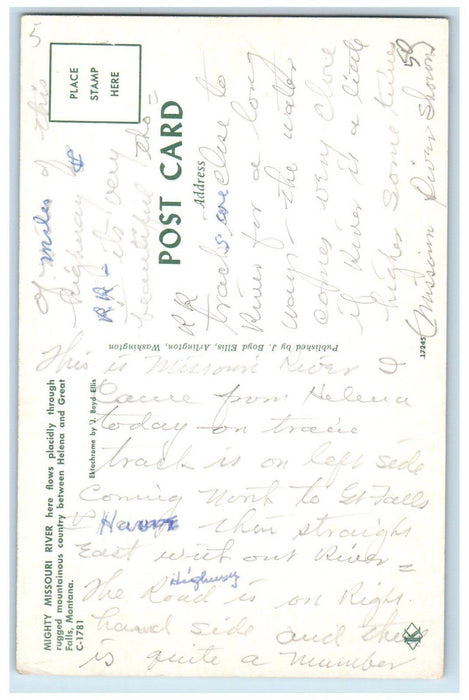 MIGHTY MISSOURI RIVER here flows placidly through
rugged mountainous country between Helena and Great
Falls, Montana.
C-1781
Ektachrome by J. Boyd Ellis
Published by J. Boyd Ellis, Arlington, Washington
POST CARD
Address
PLACE
STAMP
HERE
17245
K
This is Missouri River
Came from Helena
today on train
track is on left side
Coming North to Gt Falls
& Havre then straight
East without River =
Highway
The Road is on Right
hand side and there
is quite a number
of miles of this
highway &
RR - its very
beautiful tho =
RR
tracks are close to
River for a long
ways - the water
comes very close
if River is a little
higher sometimes
(Missouri River Shown)
50